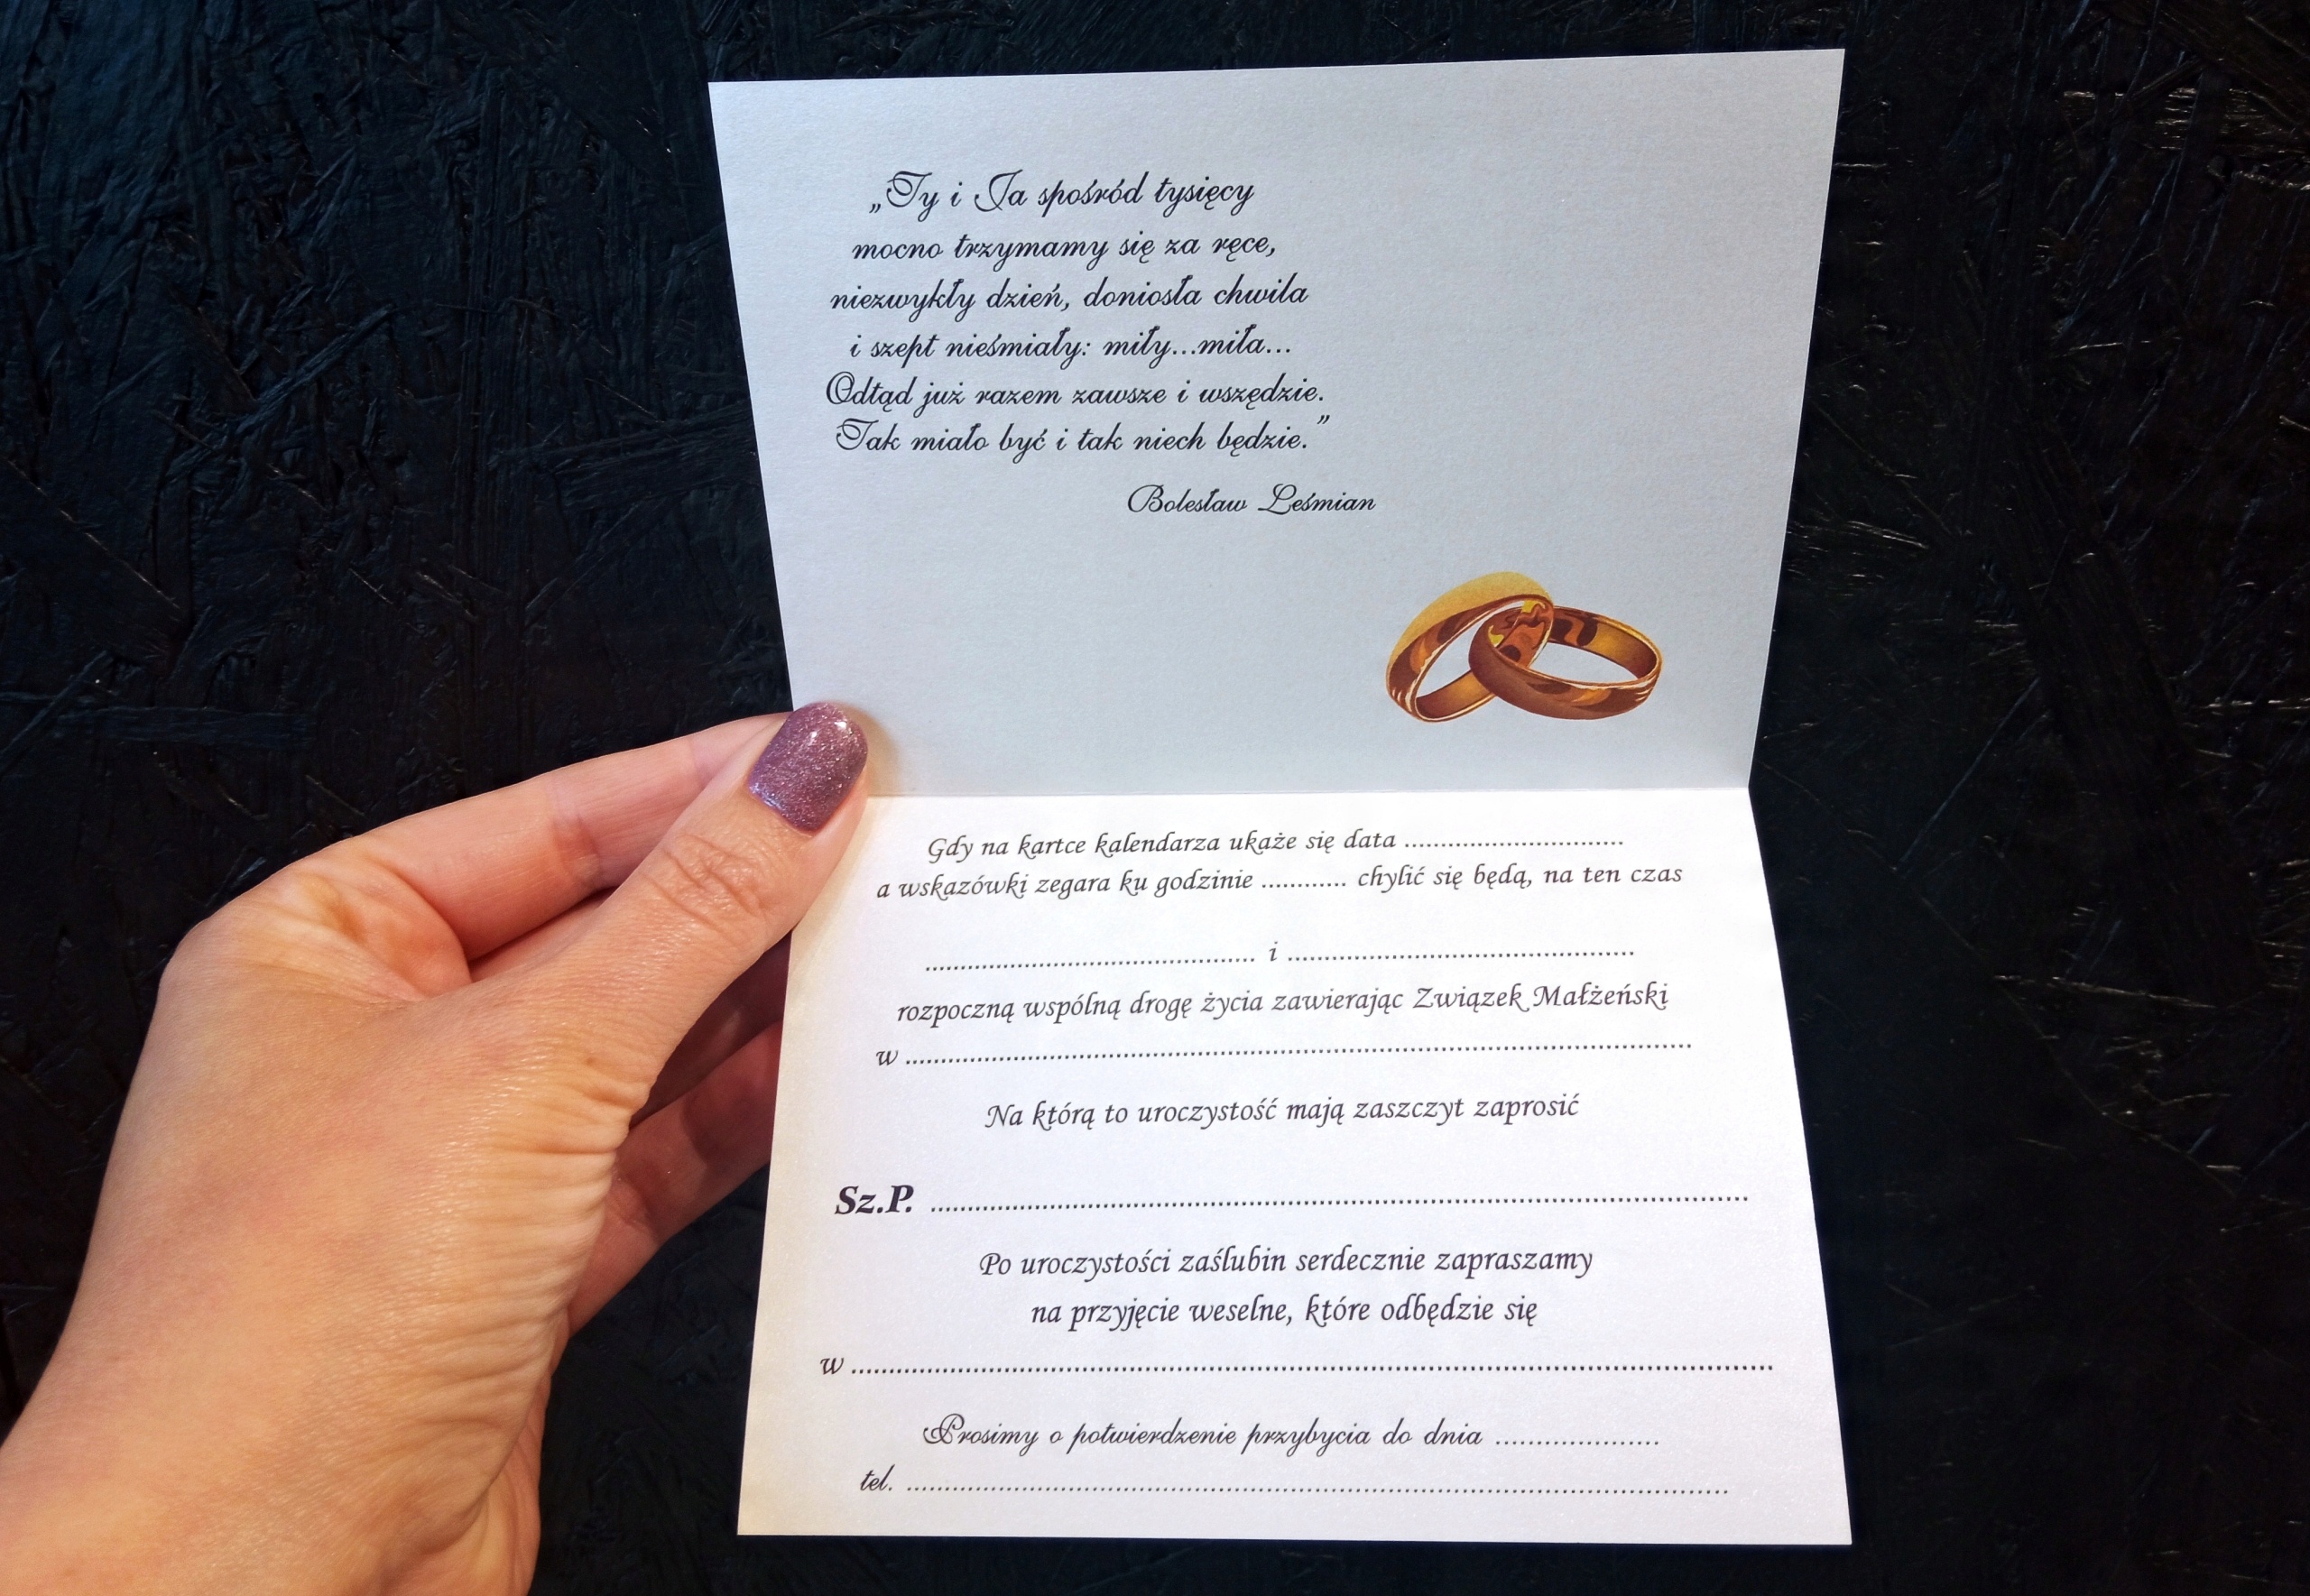 „Ty i Ja spośród tysięcy
mocno trzymamy się za ręce,
niezwykły dzień, doniosła chwila
i szept nieśmiały: miły...miła...
Odtąd już razem zawsze i wszędzie.
Tak miało być i tak niech będzie.”
Bolesław Leśmian
Gdy na kartce kalendarza ukaże się data ..............................
a wskazówki zegara ku godzinie ............ chylić się będą, na ten czas
............................................... i .................................................
rozpoczną wspólną drogę życia zawierając Związek Małżeński
w ................................................................................................................
Na którą to uroczystość mają zaszczyt zaprosić
Sz.P. ................................................................................................
Po uroczystości zaślubin serdecznie zapraszamy
na przyjęcie weselne, które odbędzie się
w ................................................................................................................
Prosimy o potwierdzenie przybycia do dnia .....................
tel. .........................................................................................................